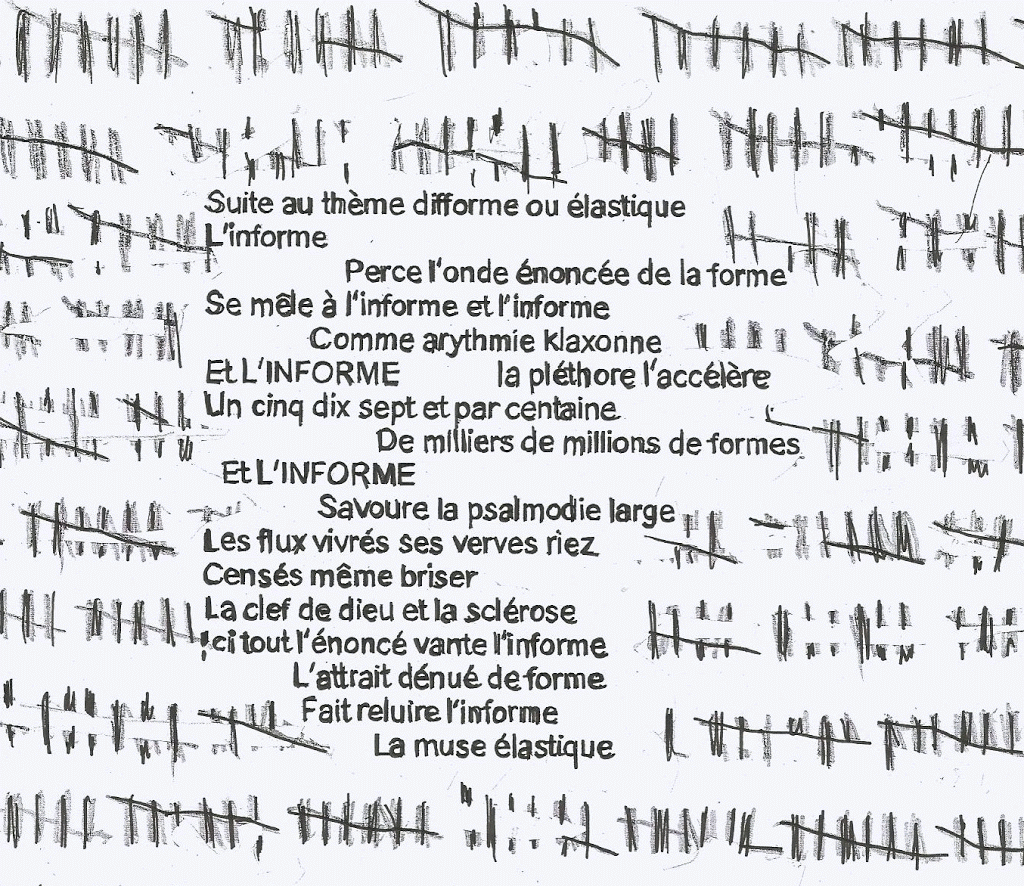 Suite au thème difforme ou élastique
L'informe
Perce l'onde énoncée de la forme
Se mêle à l'informe et l'informe
Comme arythmie klaxonne
Et L'INFORME la pléthore l'accélère
Un cinq dix sept et par centaine
De milliers de millions de formes
Et L'INFORME
Savoure la psalmodie large
Les flux vivrés ses verves riez
Censés même briser
La clef de dieu et la sclérose
Ici tout l'énoncé vante l'informe
L'attrait dénué de forme
Fait reluire l'informe
La muse élastique